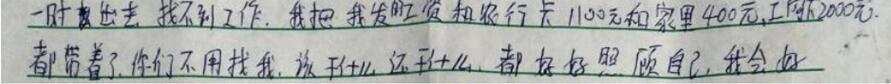 一时出去 找不到工作. 我把我发的工资和农行卡1100元和家里400元,工商2000元.
都带着了.你们不用找我.该干什么还干什么.都好好照顾自己,我会好